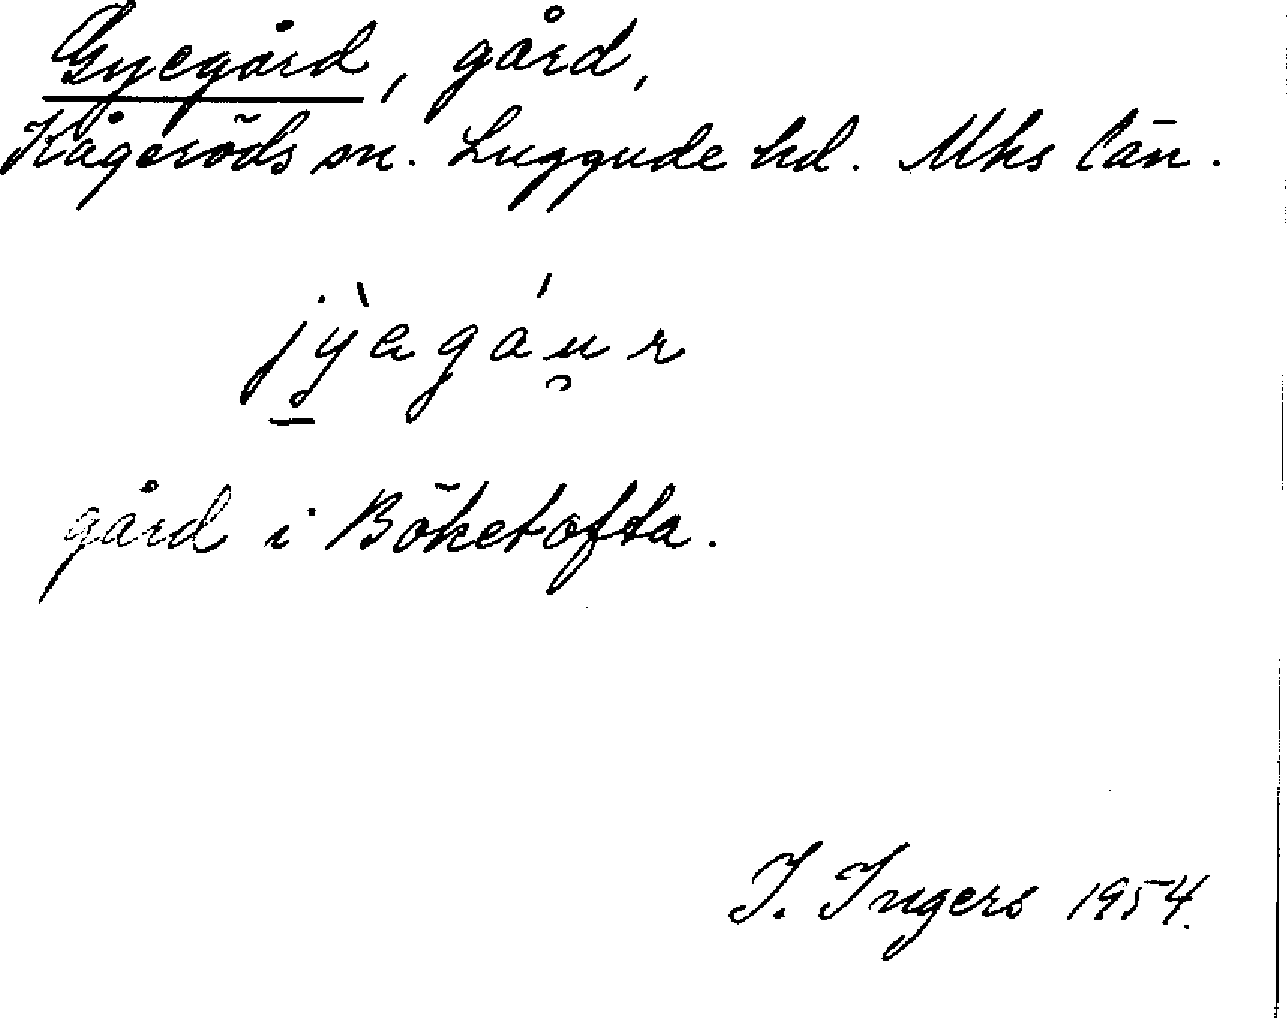 Gyegård, gård,
Kågeröds sn. Luggude hd. Mhs län.
jỳ̱agáu̯r
gård i Böketofta.
I. Ingers 1954.